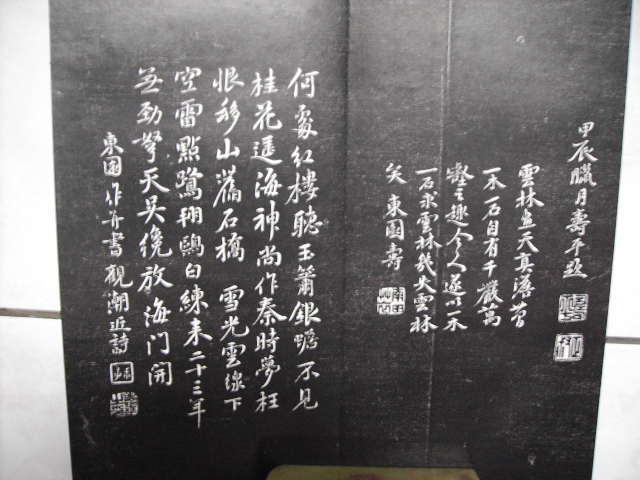 甲辰臘月壽平題
雲林畫天真澹若
一木一石自有千巖萬
壑之趣今人遂以一木
一石求雲林幾失雲林
矣 東園壽
何處紅樓聽玉簫銀蟾不見
桂花遥海神尚作秦時夢枉
恨移山舊石橋 雪光雲線下
空雷點鷺翔鷗白練來二十三年
無勁弩天吳纔放海門開
東園作并書觀潮近詩